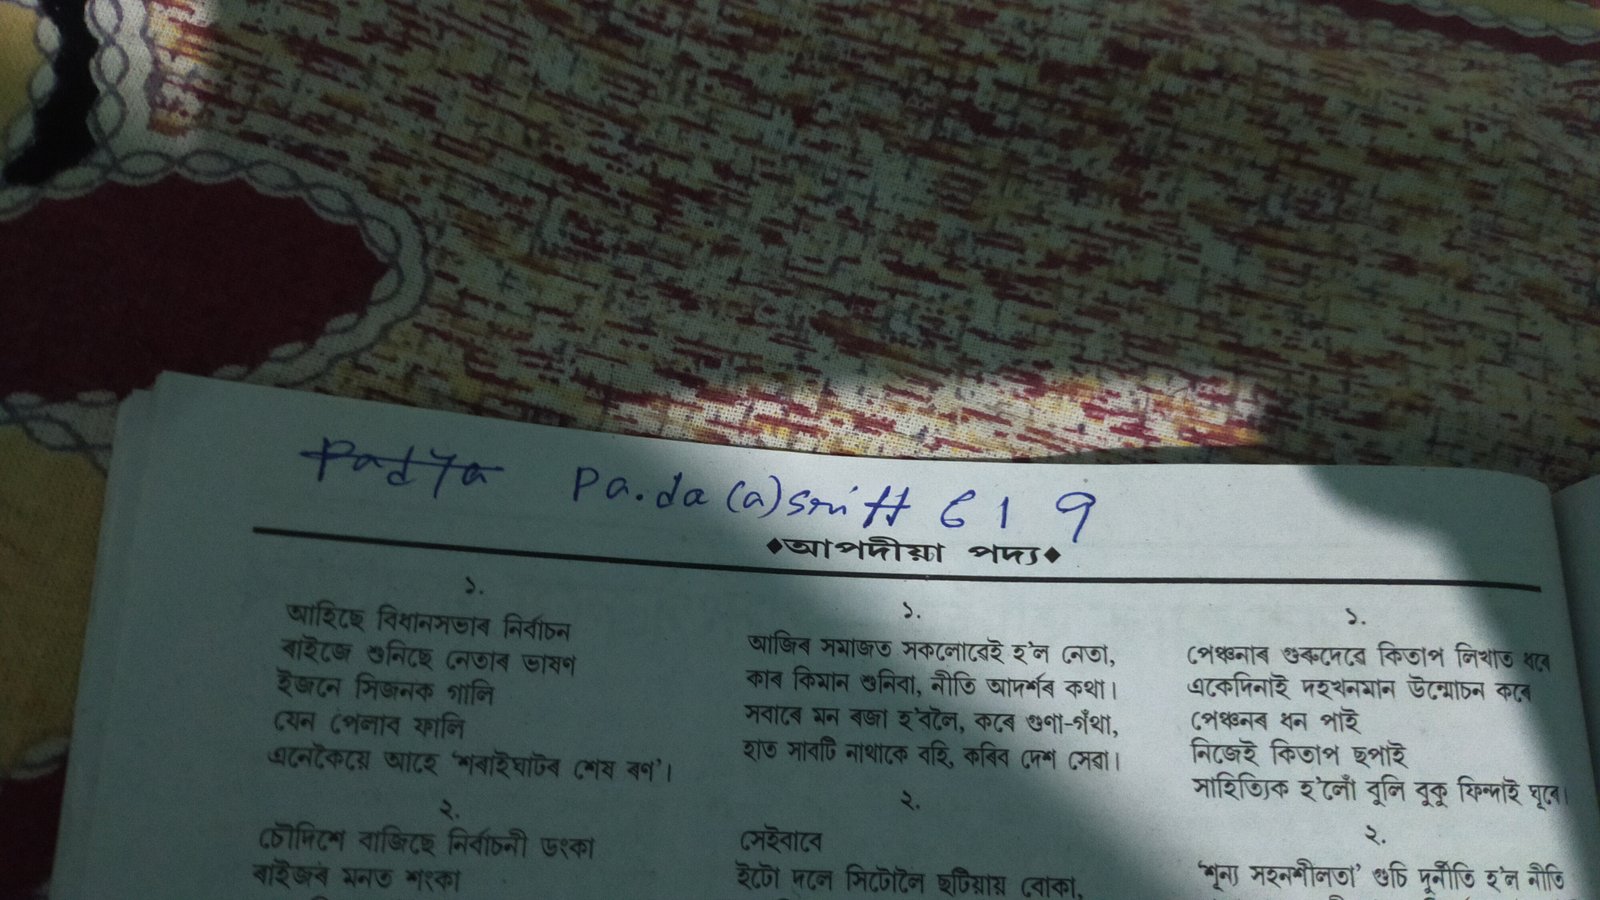 Padya Pa.da (a) sritt 619
◆আপদীয়া পদ্য◆
১.
আহিছে বিধানসভাৰ নিৰ্বাচন
ৰাইজে শুনিছে নেতাৰ ভাষণ
ইজনে সিজনক গালি
যেন পেলাব ফালি
এনেকৈয়ে আহে ‘শৰাইঘাটৰ শেষ ৰণ’।
২.
চৌদিশে বাজিছে নিৰ্বাচনী ডংকা
ৰাইজৰ মনত শংকা
১.
আজিৰ সমাজত সকলোৱেই হ’ল নেতা,
কাৰ কিমান শুনিবা, নীতি আদৰ্শৰ কথা।
সবাৰে মন ৰজা হ’বলৈ, কৰে গুণা-গঁথা,
হাত সাবটি নাথাকে বহি, কৰিব দেশ সেৱা।
২.
সেইবাবে
ইটো দলে সিটোলৈ ছটিয়ায় বোকা,
১.
পেঞ্চনাৰ গুৰুদেৱে কিতাপ লিখাত ধৰে
একেদিনাই দহখনমান উন্মোচন কৰে
পেঞ্চনৰ ধন পাই
নিজেই কিতাপ ছপাই
সাহিত্যিক হ’লোঁ বুলি বুকু ফিন্দাই ঘূৰে।
২.
‘শূন্য সহনশীলতা’ গুচি দুৰ্নীতি হ’ল নীতি